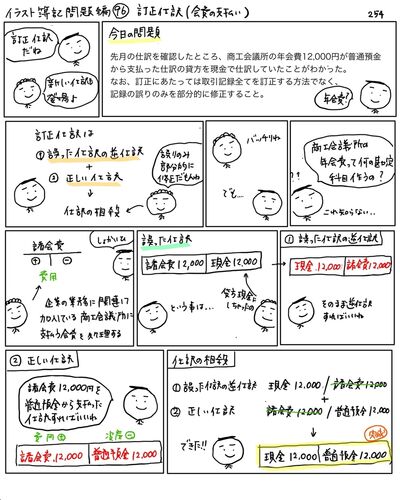 イラスト簿記 問題編 96 訂正仕訳(会費の支払い)
254
訂正仕訳
だね
新しい仕訳は
今日の問題
先月の仕訳を確認したところ、商工会議所の年会費12,000円が普通預金
から支払った仕訳の貸方を現金で仕訳していたことがわかった。
なお、訂正にあたっては取引記録全てを訂正する方法でなく、
記録の誤りのみを部分的に修正すること。
年会費?
訂正仕訳は
①誤った仕訳の逆仕訳
+
② 正しい仕訳
↓
仕訳の相殺
誤りのみ
部分的に
修正だもんね
バッチリね
でも…
商工会議所の
年会費って何の勘定
科目使うの?
これ知らない…
諸会費
⊕ ⊖
費用
しょかいひ
企業の業務に関連して
加入している商工会議所に
支払う会費を処理する
誤った仕訳
諸会費 12,000 現金 12,000
という事は…
貸方現金に
しちゃった
① 誤った仕訳の逆仕訳
現金 12,000 諸会費 12,000
そのまま逆仕訳
すればいいね
② 正しい仕訳
諸会費12,000円を
普通預金から支払った
仕訳すればいいね
費用⊕ 資産⊖
諸会費 12,000 普通預金 12,000
仕訳の相殺
① 誤った仕訳の逆仕訳 現金 12,000 / 諸会費 12,000
② 正しい仕訳 諸会費 12,000 / 普通預金 12,000
できた!!
↓
完成
現金 12,000 普通預金 12,000